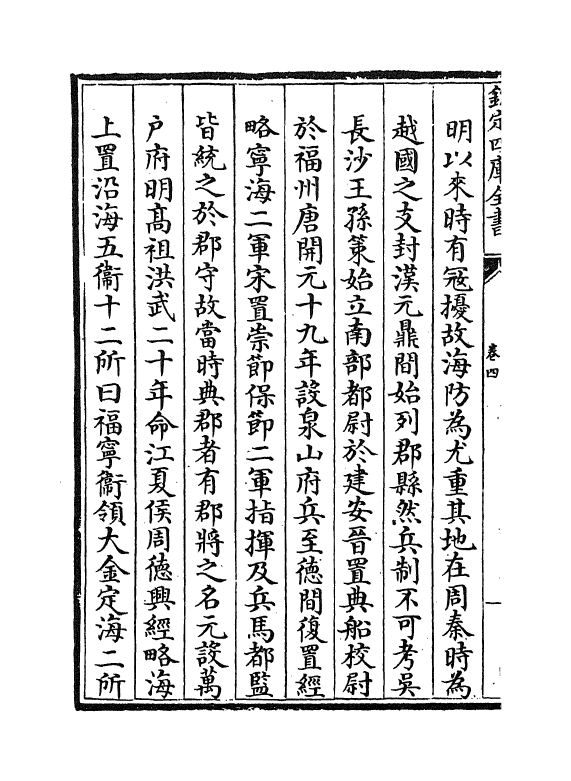 欽定四庫全書
卷四
明以來時有冦擾故海防為尤重其地在周秦時為
越國之支封漢元鼎間始列郡縣然兵制不可考吳
長沙王孫策始立南部都尉於建安晉置典船校尉
於福州唐開元十九年設泉山府兵至德間復置經
略寧海二軍宋置崇節保節二軍指揮及兵馬都監
皆統之於郡守故當時典郡者有郡將之名元設萬
户府明髙祖洪武二十年命江夏侯周德興經略海
上置沿海五衞十二所曰福寧衞領大金定海二所